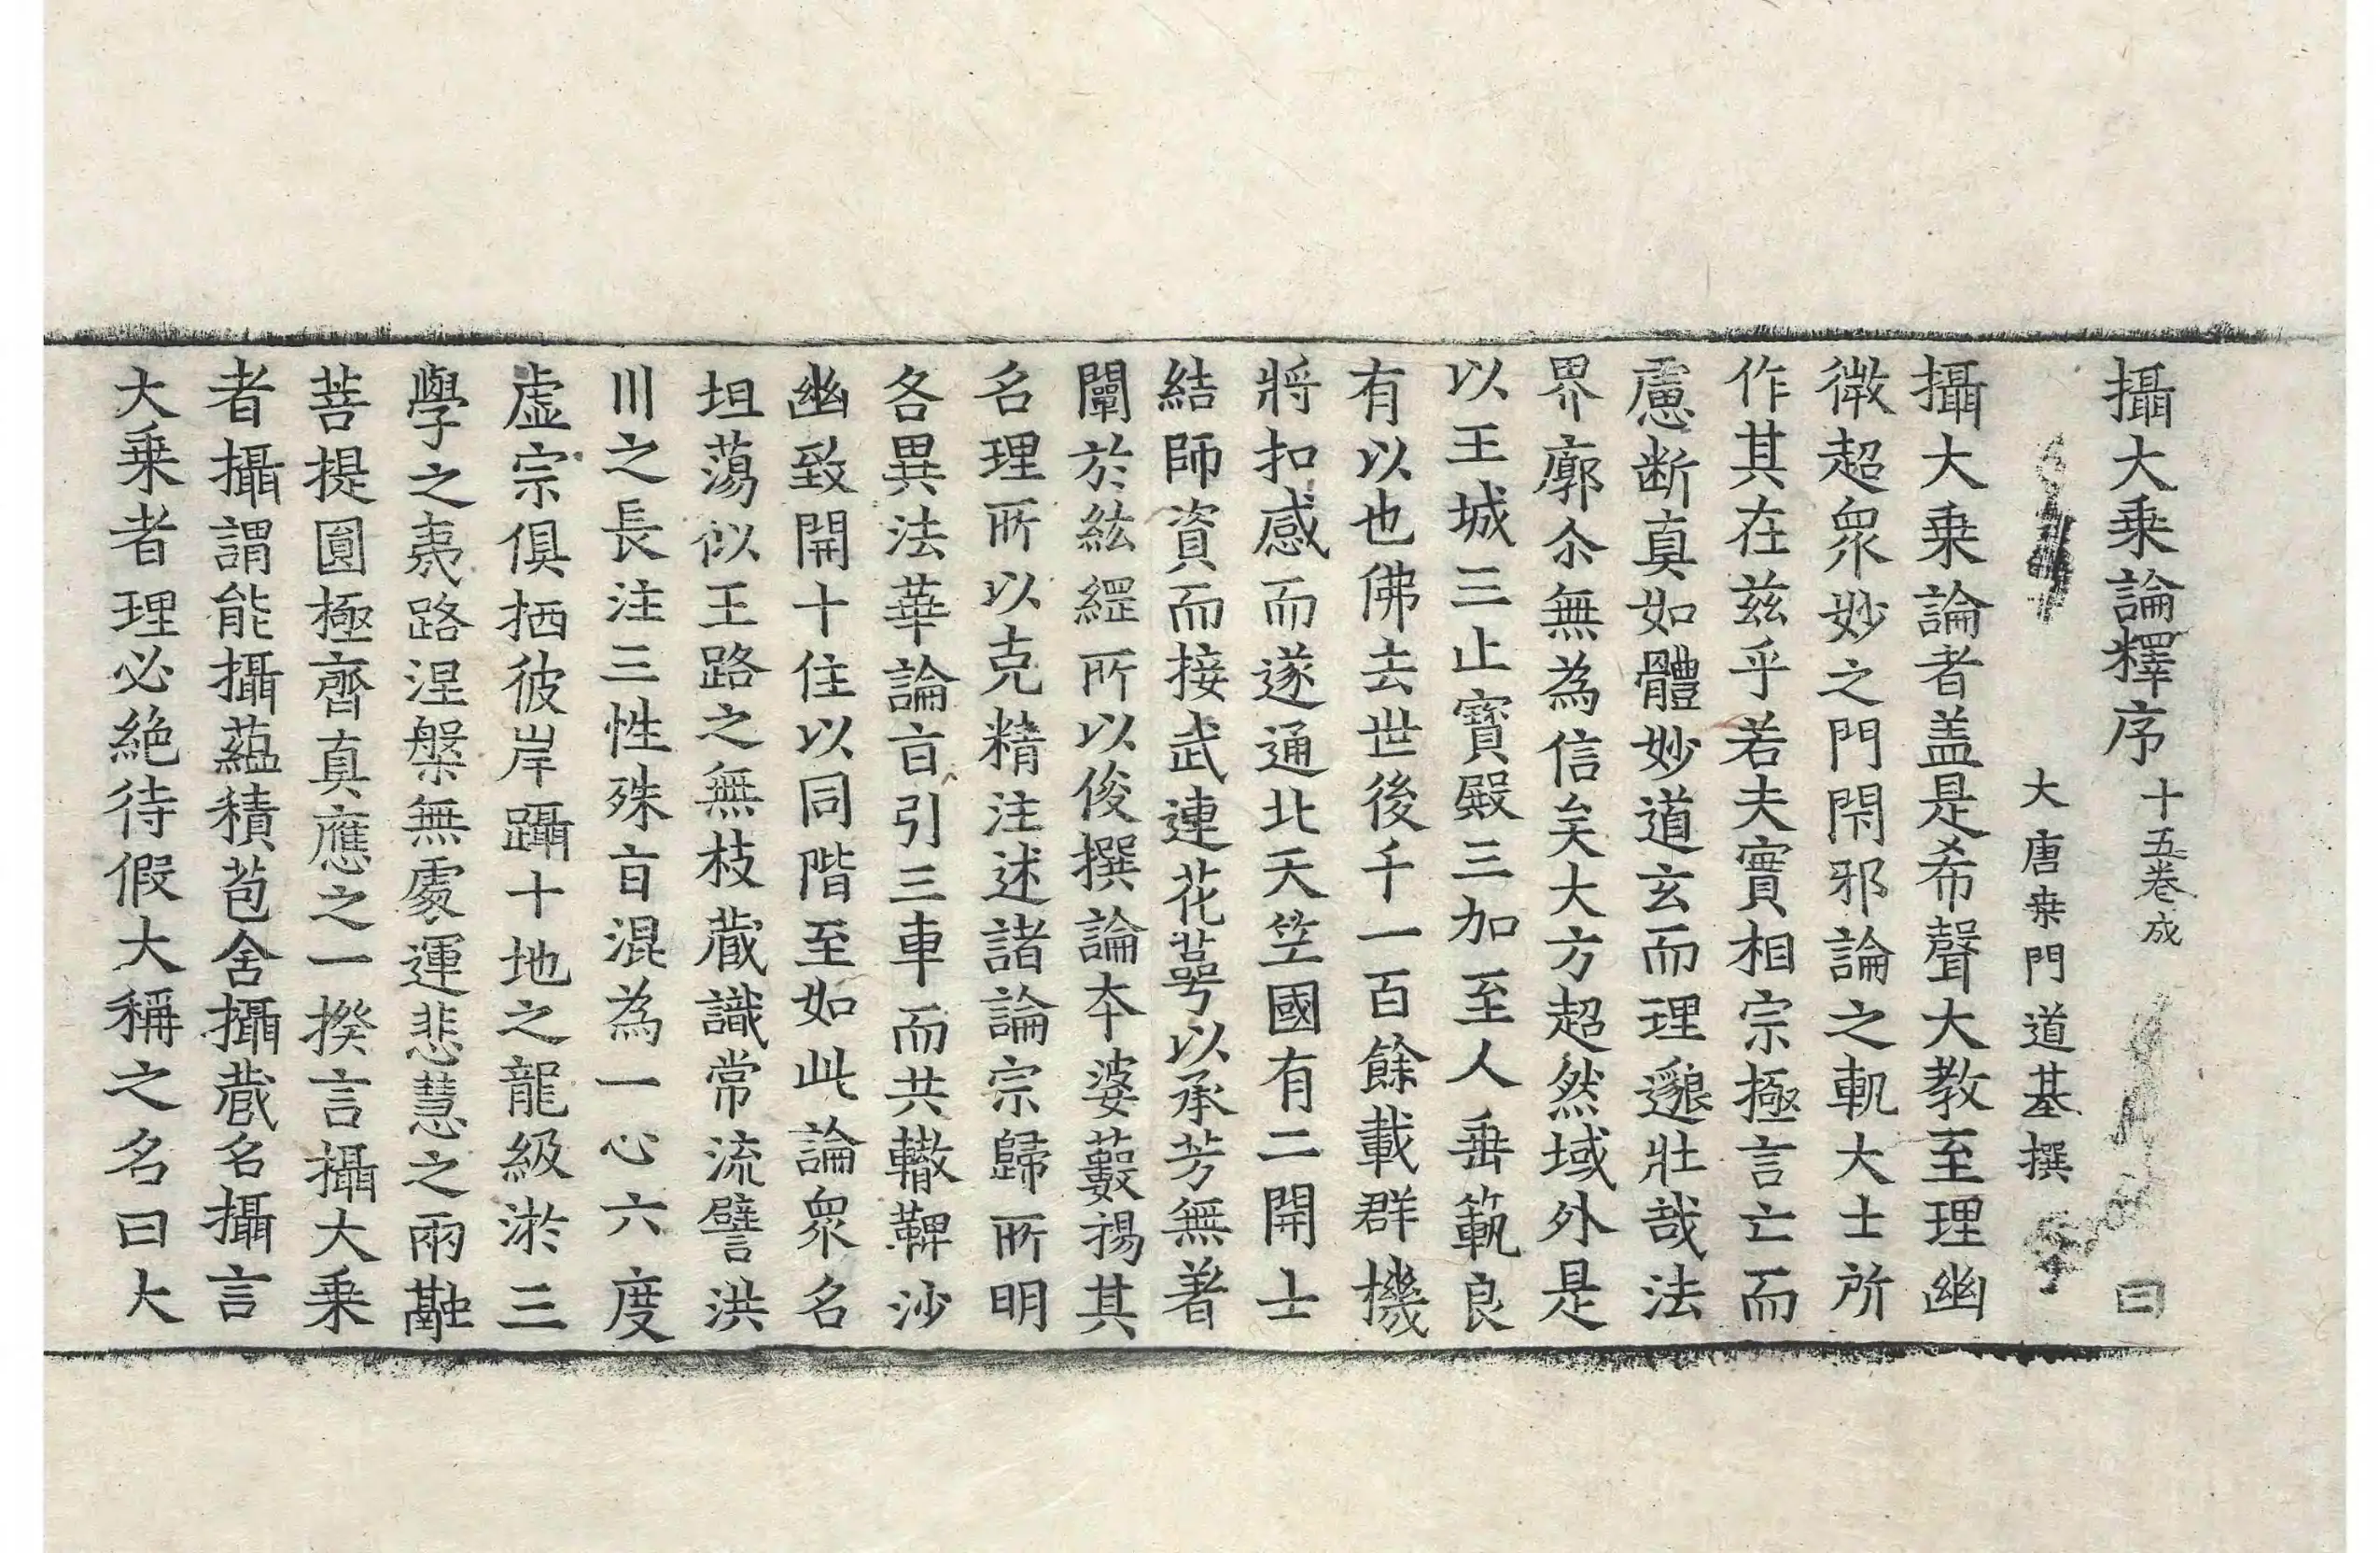 攝大乗論釋序 十五卷成 曰
大唐桒門道基撰
攝大乗論者盖是希聲大教至理幽
微超衆妙之門閇邪論之軌大士所
作其在兹乎若夫實相宗極言亡而
慮断真如體妙道玄而理邈壯哉法
界廓尒無為信矣大方超然域外是
以王城三止寶殿三加至人垂範良
有以也佛去世後千一百餘載群機
將扣感而遂通北天笁國有二開士
結師資而接武連花萼以承芳無著
闡於紘綱所以俊撰論本婆藪揚其
名理所以克精注述諸論宗歸所明
各異法華論㫖引三車而共轍鞞沙
幽致開十住以同階至如此論衆名
坦蕩似王路之無枝蔵識常流譬洪
川之長注三性殊㫖混為一心六度
虚宗俱栖彼岸躡十地之龍級淤三
學之夷路涅槃無處運悲慧之兩融
菩提圓極齊真應之一揆言攝大乗
者攝謂能攝藴積苞含攝蔵名攝言
大乗者理必絶待假大稱之名曰大